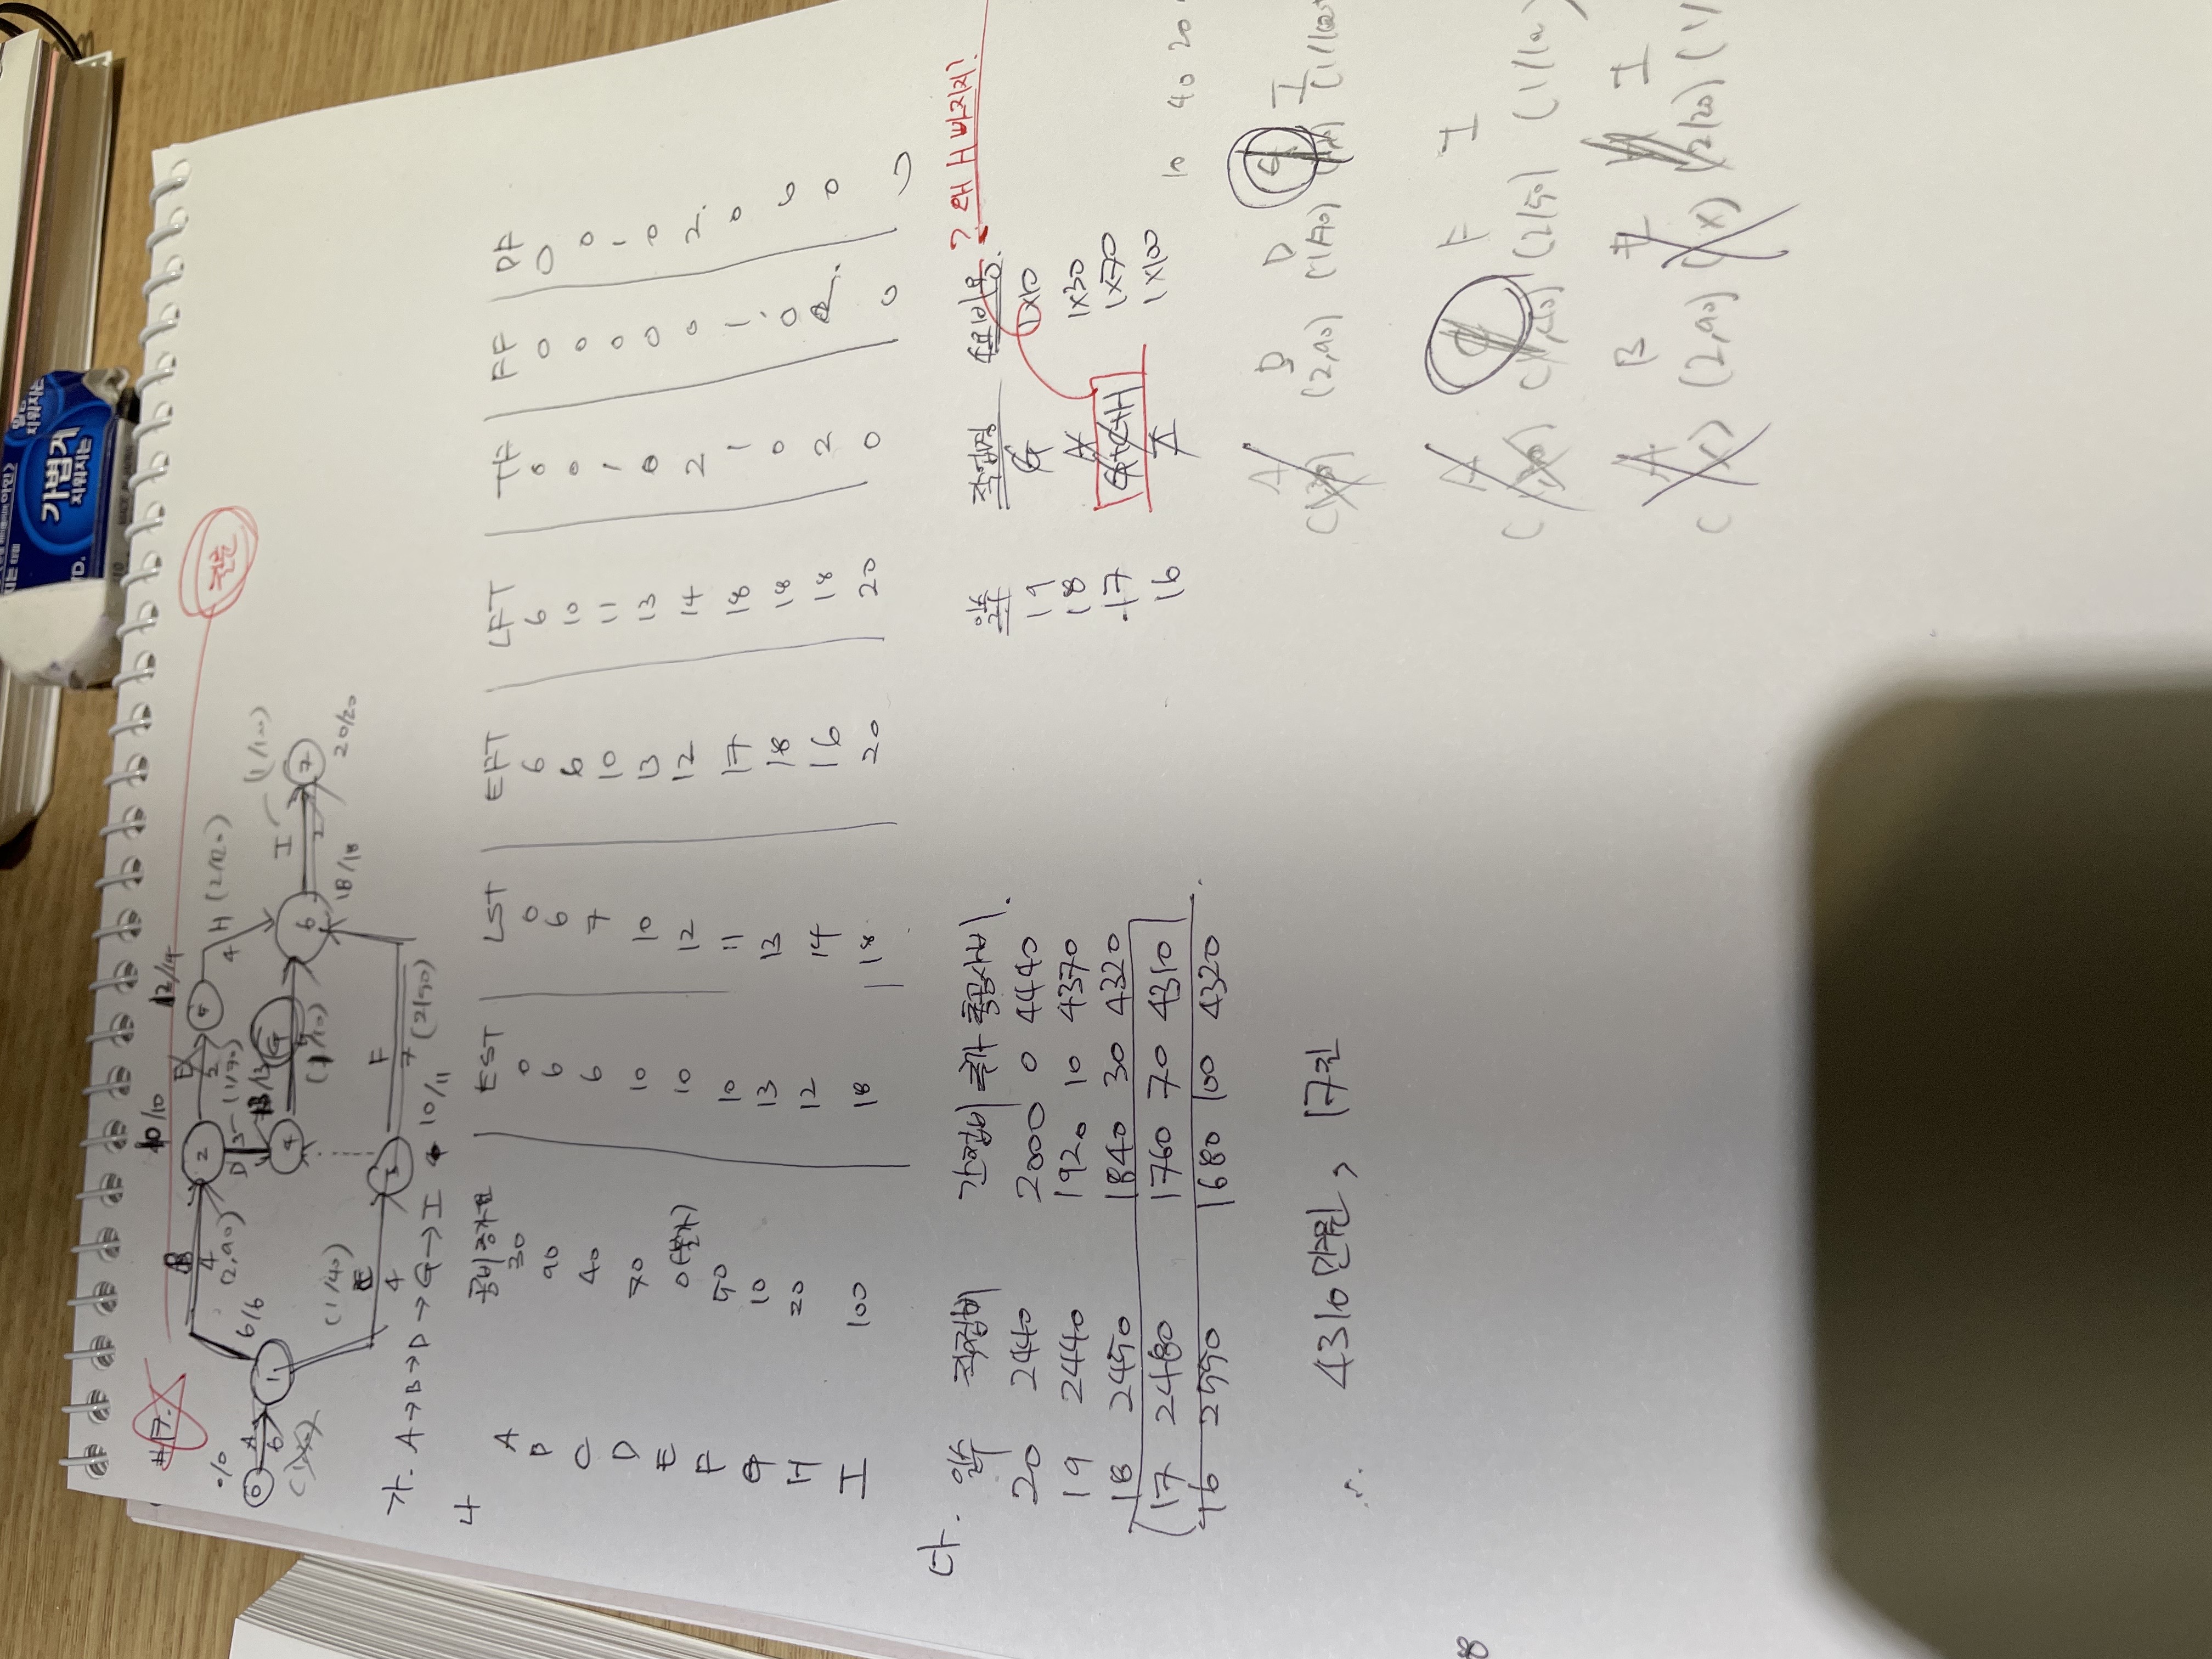 #17.
주관
0/0
0
A
6
1
6/6
B
4
(2,90)
10/10
2
E
2
(1/70)
5
12/14
H (2/20)
4
D
3
13/13
4
G
5
(1/10)
C
4
(1/40)
3
10/11
F
7
(2/50)
6
18/18
I
(1/100)
2
7
20/20
가. A→B→D→G→I
나
공비증가표 EST LST EFT LFT TF FF DF
A 30 0 0 6 6 0 0 0
B 90 6 6 6 10 0 0 0
C 40 6 7 10 11 1 0 1
D 70 10 10 13 13 0 0 0
E 0(불가) 10 12 12 14 2 0 2
F 50 10 11 17 18 1 1 0
G 10 13 13 18 18 0 0
H 20 12 14 16 18 2 0
I 100 18 18 20 20 0 0
다.
일수 직접비 간접비 추가 총공사비
20 2440 2000 0 4440
19 2440 1920 10 4370
18 2450 1840 30 4320
17 2480 1760 70 4310
16 2550 1680 100 4320
∴ 4310만원, 17일
일수 작업명 추가비용
19 G 1X10
18 A 1X30
17 G+C+H 1X70
16 I 1X100
? 왜 H 빠지지?
10 40 20
A B D G I
(2,90) (1/100)
A C F I
(2/50) (1/100)
A B E I
(2,90) (X) (2/20)
8
기법